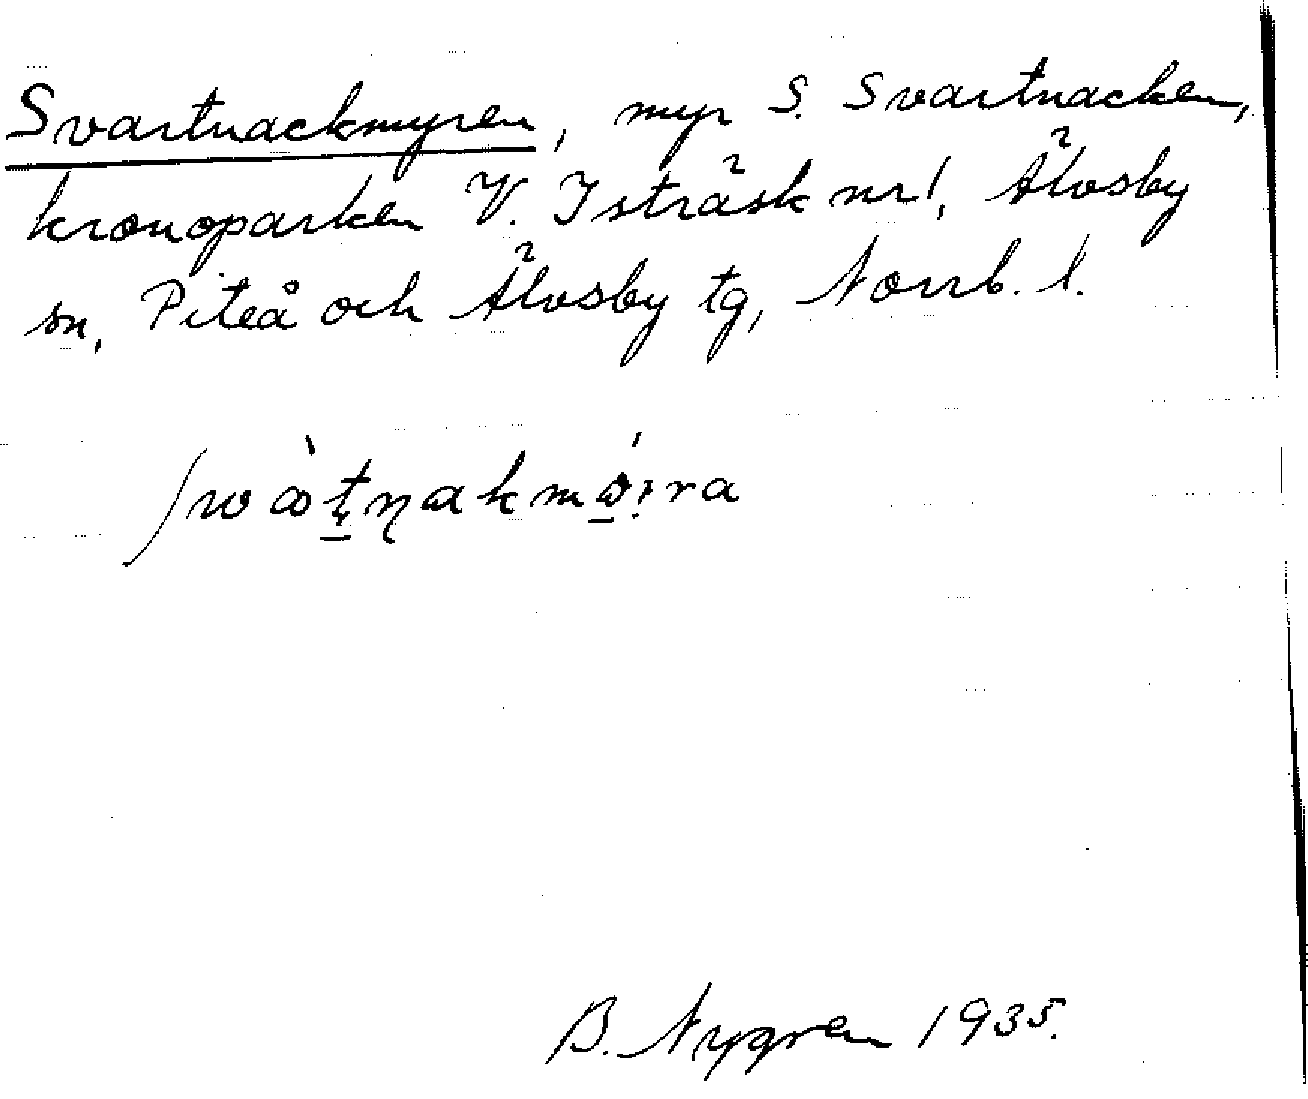 Svartnackmyren, myr S. Svartnacken,
kronoparken V. Isträsk nr 1, Älvsby
sn, Piteå och Älvsby tg, Norrb. l.
B. Nygren 1935.